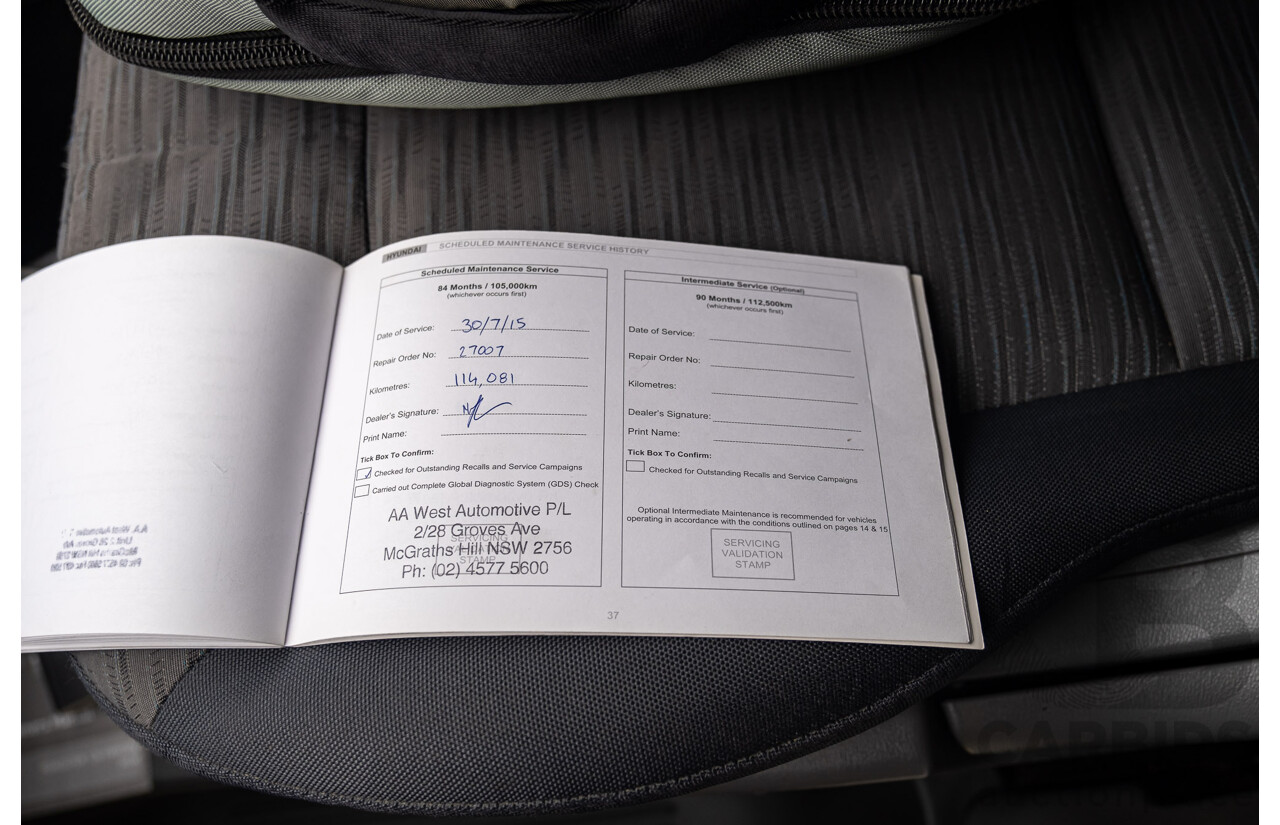 HYUNDAI SCHEDULED MAINTENANCE SERVICE HISTORY
Scheduled Maintenance Service
84 Months / 105,000km
(whichever occurs first)
Date of Service: 30/7/15
Repair Order No: 27007
Kilometres: 114,081
Dealer's Signature:
Print Name:
Tick Box To Confirm:
Checked for Outstanding Recalls and Service Campaigns
Carried out Complete Global Diagnostic System (GDS) Check
AA West Automotive P/L
2/28 Groves Ave
McGraths Hill NSW 2756
Ph: (02) 4577 5600
SERVICING
VALIDATION
STAMP
Intermediate Service (Optional)
90 Months / 112,500km
(whichever occurs first)
Date of Service:
Repair Order No:
Kilometres:
Dealer's Signature:
Print Name:
Tick Box To Confirm:
Checked for Outstanding Recalls and Service Campaigns
Optional Intermediate Maintenance is recommended for vehicles
operating in accordance with the conditions outlined on pages 14 & 15
SERVICING
VALIDATION
STAMP
37
CARBIDS